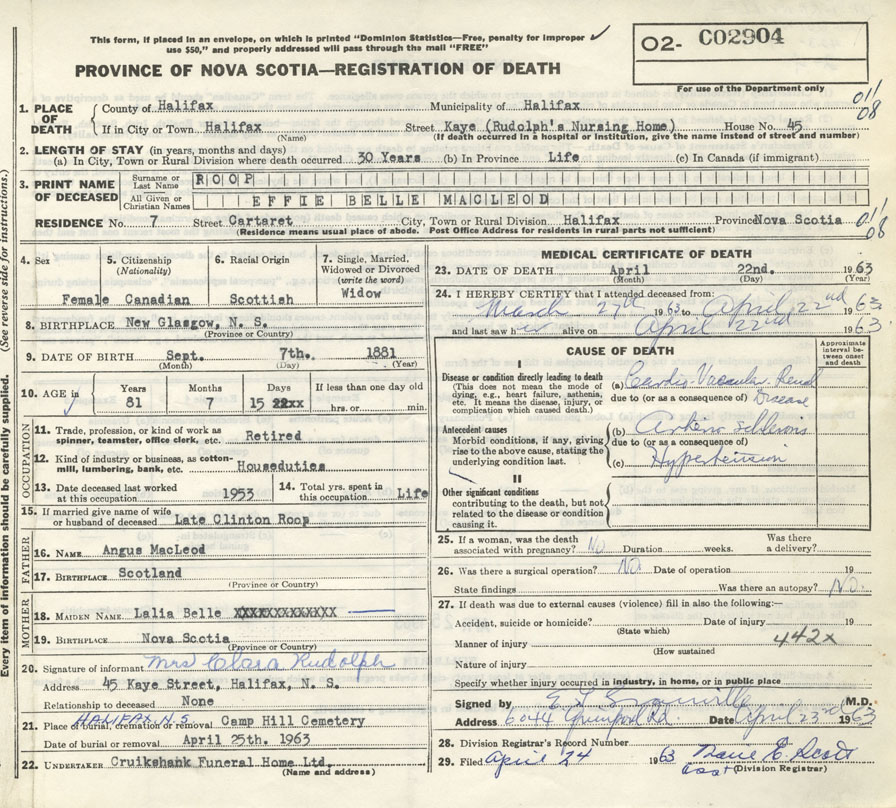 This form, if placed in an envelope, on which is printed "Dominion Statistics—Free, penalty for improper
use $50," and properly addressed will pass through the mail "FREE"
O2- C02904
For use of the Department only
PROVINCE OF NOVA SCOTIA—REGISTRATION OF DEATH
011/08
1. PLACE OF DEATH
County of Halifax Municipality of Halifax
If in City or Town Halifax Street Kaye (Rudolph's Nursing Home) House No. 45
(Name) (If death occurred in a hospital or institution, give the name instead of street and number)
2. LENGTH OF STAY (in years, months and days)
(a) In City, Town or Rural Division where death occurred 30 Years (b) In Province Life (c) In Canada (if immigrant)
3. PRINT NAME OF DECEASED
Surname or Last Name ROOP
All Given or Christian Names EFFIE BELLE MACLEOD
RESIDENCE No. 7 Street Cartaret City, Town or Rural Division Halifax Province Nova Scotia
(Residence means usual place of abode. Post Office Address for residents in rural parts not sufficient)
011/08
4. Sex Female
5. Citizenship (Nationality) Canadian
6. Racial Origin Scottish
7. Single, Married, Widowed or Divorced (write the word) Widow
8. BIRTHPLACE New Glasgow, N. S.
(Province or Country)
9. DATE OF BIRTH Sept. 7th. 1881
(Month) (Day) (Year)
10. AGE in Years 81 Months 7 Days 15 22xx If less than one day old hrs. or min.
OCCUPATION
11. Trade, profession, or kind of work as spinner, teamster, office clerk, etc. Retired
12. Kind of industry or business, as cotton-mill, lumbering, bank, etc. Houseduties
13. Date deceased last worked at this occupation 1953
14. Total yrs. spent in this occupation Life
15. If married give name of wife or husband of deceased Late Clinton Roop
FATHER
16. NAME Angus MacLeod
17. BIRTHPLACE Scotland
(Province or Country)
MOTHER
18. MAIDEN NAME Lalia Belle XXXXXXXXXXXXX
19. BIRTHPLACE Nova Scotia
(Province or Country)
20. Signature of informant Mrs Clara Rudolph
Address 45 Kaye Street, Halifax, N. S.
Relationship to deceased None
HALIFAX N.S
21. Place of burial, cremation or removal Camp Hill Cemetery
Date of burial or removal April 25th. 1963
22. UNDERTAKER Cruikshank Funeral Home Ltd.
(Name and address)
MEDICAL CERTIFICATE OF DEATH
23. DATE OF DEATH April 22nd. 1963
(Month) (Day) (Year)
24. I HEREBY CERTIFY that I attended deceased from:
March 27th 1963 to April 22nd 1963
and last saw her alive on April 22nd 1963
CAUSE OF DEATH
Approximate interval between onset and death
I
Disease or condition directly leading to death
(This does not mean the mode of dying, e.g., heart failure, asthenia, etc. It means the disease, injury, or complication which caused death.)
(a) Cardio-Vascular-Renal
due to (or as a consequence of) Disease
Antecedent causes
Morbid conditions, if any, giving rise to the above cause, stating the underlying condition last.
(b) Arterio Sclerosis
due to (or as a consequence of)
(c) Hypertension
II
Other significant conditions
contributing to the death, but not related to the disease or condition causing it.
25. If a woman, was the death associated with pregnancy? No Duration weeks. Was there a delivery?
26. Was there a surgical operation? No. Date of operation 19
State findings Was there an autopsy? No.
27. If death was due to external causes (violence) fill in also the following:—
Accident, suicide or homicide? Date of injury 19
(State which)
Manner of injury 442x
(How sustained
Nature of injury
Specify whether injury occurred in industry, in home, or in public place
Signed by M.D.
Address 6044 Rd. Date April 23rd 1963
28. Division Registrar's Record Number
29. Filed April 24 1963 Scott
(Division Registrar)
Every item of information should be carefully supplied. (See reverse side for instructions.)